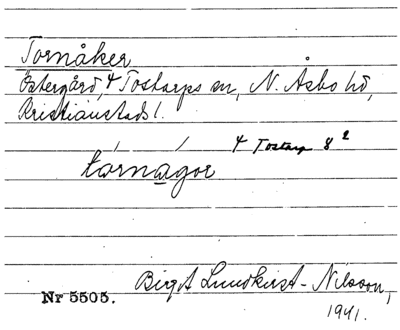 Tornåker
Östergård, 4 Tostarps sn, N. Åsbo hd,
Kristianstads l.
4 Tostarp 8²
tórnágor
Birgit Lundkvist-Nilsson,
Nr 5505.
1941.